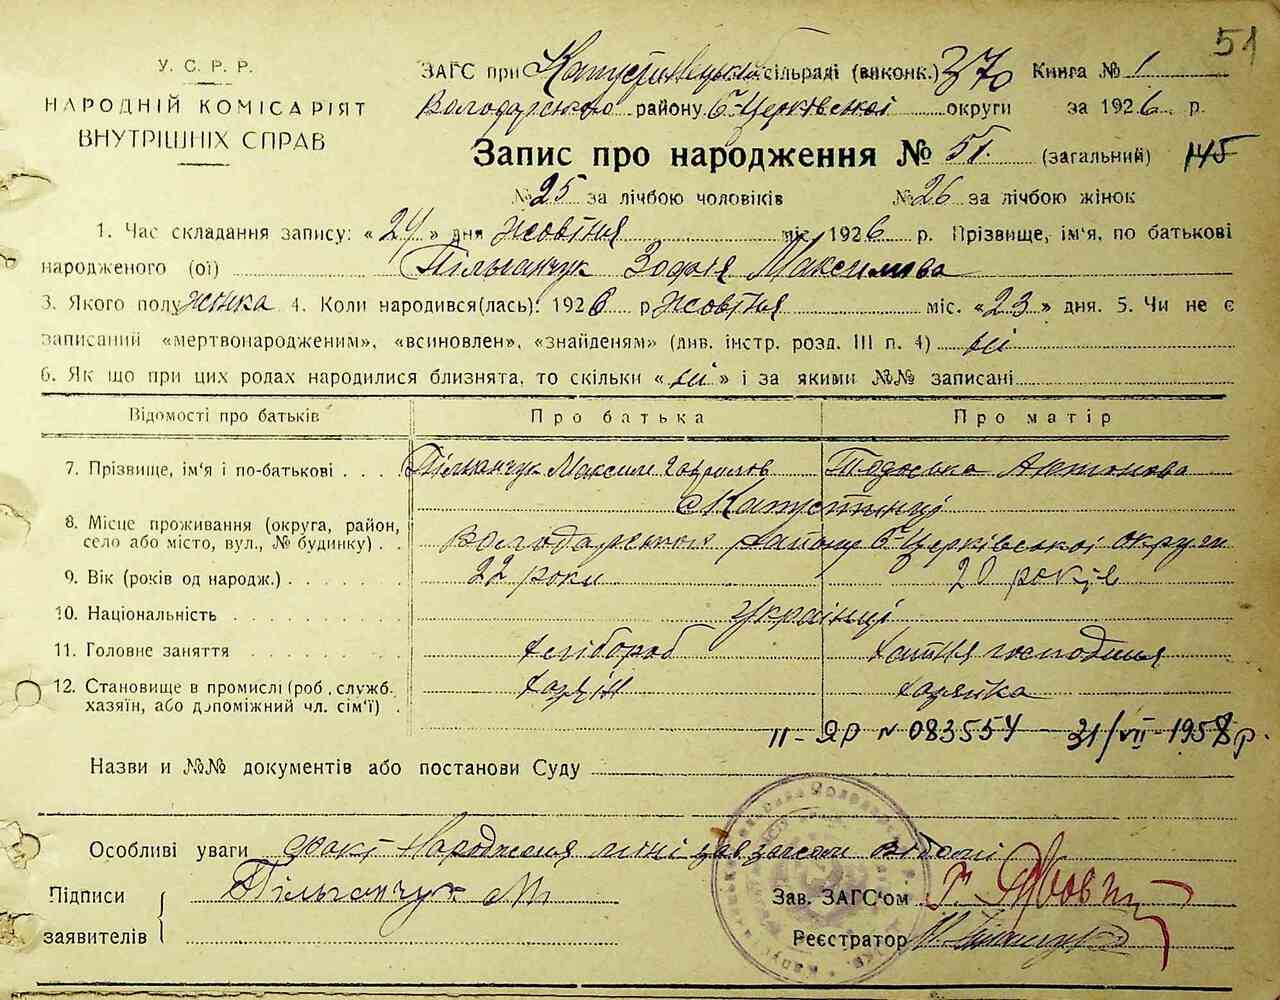 51
У. С. Р. Р.
НАРОДНІЙ КОМІСАРІЯТ
ВНУТРІШНІХ СПРАВ
ЗАГС при Капустинецькій сільраді (виконк.) 370 Книга № 1
Володарського району Б-Церківської округи за 1926 р.
Запис про народження № 51. (загальний) 145
№ 25 за лічбою чоловіків № 26 за лічбою жінок
1. Час складання запису: « 24 » дня жовтня міс. 1926 р. Прізвище, ім'я, по батькові
народженого (ої) Пільганчук Зофія Максимова
3. Якого полу жінка 4. Коли народився(лась): 1926 р. жовтня міс. «23» дня. 5. Чи не є
записаний «мертвонародженим», «всиновлен», «знайденям» (див. інстр. розд. III п. 4) ні
6. Як що при цих родах народилися близнята, то скільки « ні » і за якими №№ записані
Відомості про батьків Про батька Про матір
7. Прізвище, ім'я і по-батькові . . . Пільганчук Максим Гаврилов Тодоська Антонова
с Капустинці
8. Місце проживання (округа, район,
село або місто, вул., № будинку) . . Володарського району Б-Церківської округи
9. Вік (років од народж.) 22 роки 20 років
10. Національність Українці
11. Головне заняття хлібороб хатня господиня
12. Становище в промислі (роб., служб.
хазяїн, або допоміжний чл. сім'ї) . хазяїн хазяйка
II-ЯР № 083554 31/VII-1958 р.
Назви и №№ документів або постанови Суду
Особливі уваги факт народження мині зав загсом відомі
Підписи
заявителів
Пільганчук М
Зав. ЗАГС'ом
Реєстратор